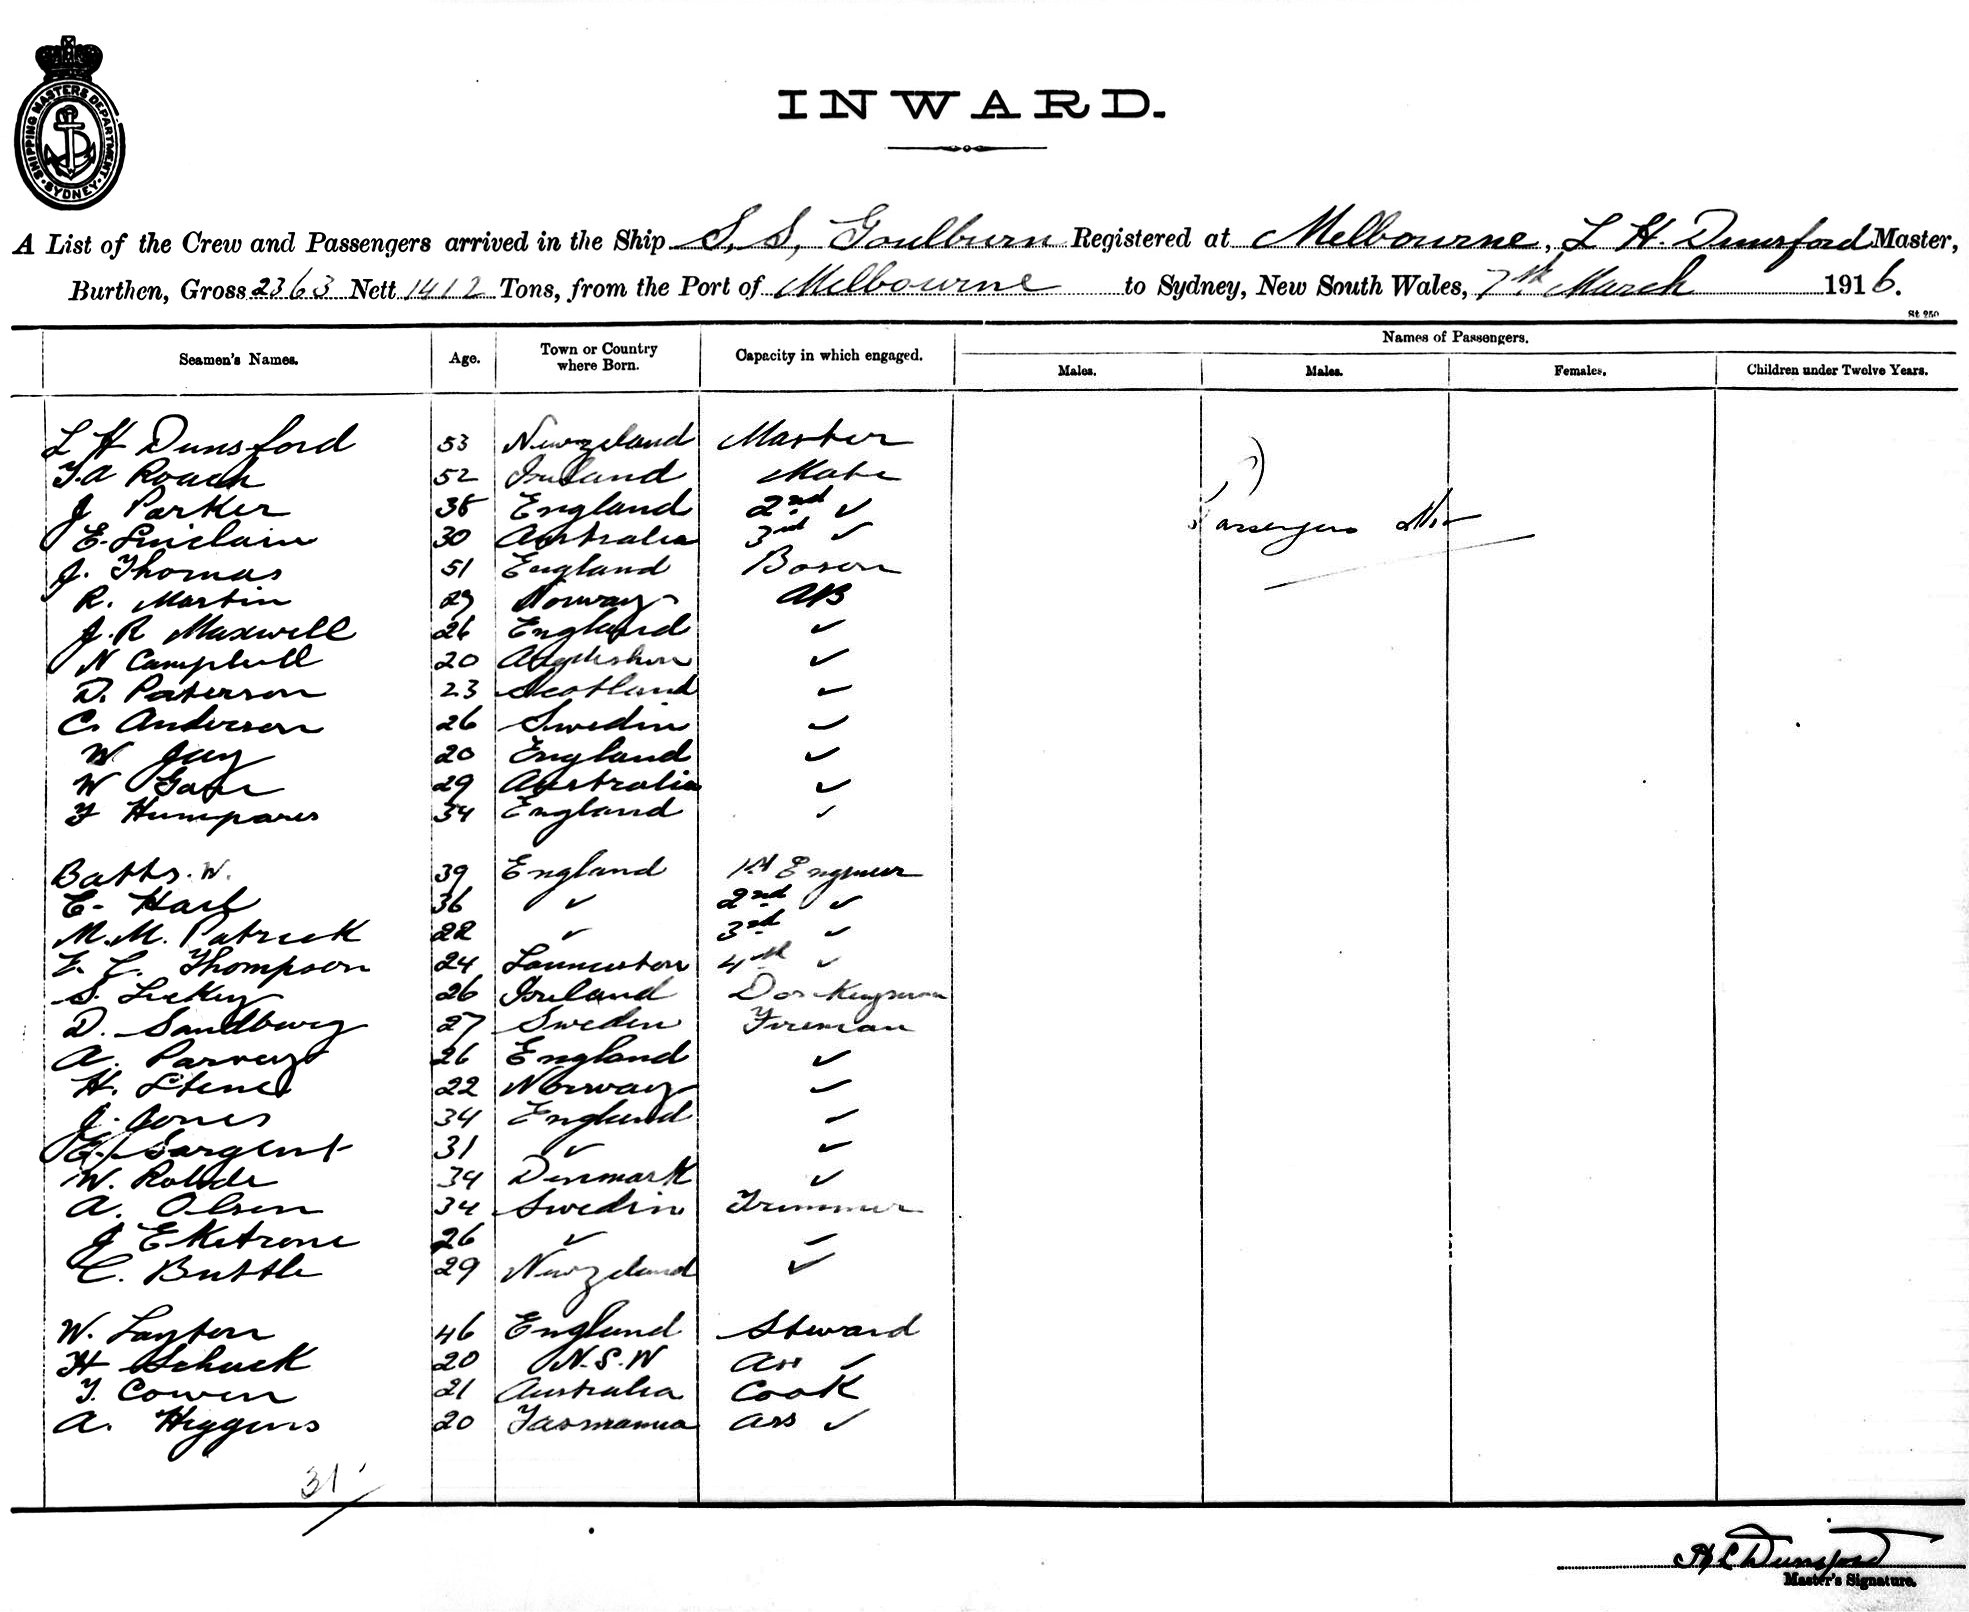 SHIPPING MASTERS DEPARTMENT
SYDNEY
INWARD.
A List of the Crew and Passengers arrived in the Ship S.S. Goulburn Registered at Melbourne, L H. Dunsford Master,
Burthen, Gross 2363 Nett 1412 Tons, from the Port of Melbourne to Sydney, New South Wales, 7th March 1916.
St 250
Seamen's Names. Age. Town or Country where Born. Capacity in which engaged. Names of Passengers.
Males. Males. Females. Children under Twelve Years.
L H Dunsford 53 Newzeland Master
T.A Roach 52 Ireland Mate
J Parker 35 England 2nd ✓
E. Sinclair 30 Australia 3rd ✓
Passengers Nil
J. Thomas 51 England Boson
R. Martin 29 Norway AB
J. R Maxwell 26 England ✓
N Campbell 20 ✓
D. Paterson 23 Scotland ✓
C. Anderson 26 Swedin ✓
W Jay 20 England ✓
W 29 Australia ✓
F Humpares 34 England ✓
Batts. W. 39 England 1st Engineer
E. Harl 36 ✓ 2nd ✓
M. M. Patrick 22 ✓ 3rd ✓
E. L. Thompson 24 Launceston 4th ✓
S. Luckey 26 Ireland Donkeyman
D. Sandberg 27 Sweden Fireman
A. 26 England ✓
H. Stene 22 Norway ✓
J. Jones 34 England ✓
E. Sargent 31 ✓ ✓
W. Rohde 34 Denmark ✓
A. Olsen 34 Swedin Trimmer
J Eketrone 26 ✓ ✓
C. Buttle 29 Newzeland ✓
W. Layton 46 England Steward
H Schuck 20 N.S.W Ass ✓
T. Cowen 21 Australia Cook
A. Higgins 20 Tasmania Ass ✓
31
H L Dunsford
Master's Signature.